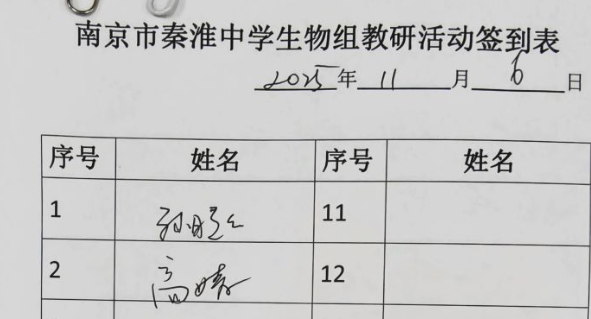 南京市秦淮中学生物组教研活动签到表
2025年 11 月 6 日
序号 姓名 序号 姓名
1 11
2 高婧 12